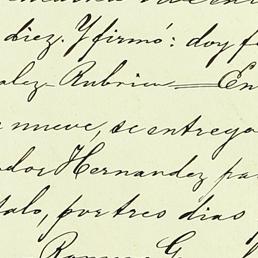 diez. Y firmó: doy f
alez Rubrica = En
nueve, se entrego
Hernandez pa
talo, por tres dias